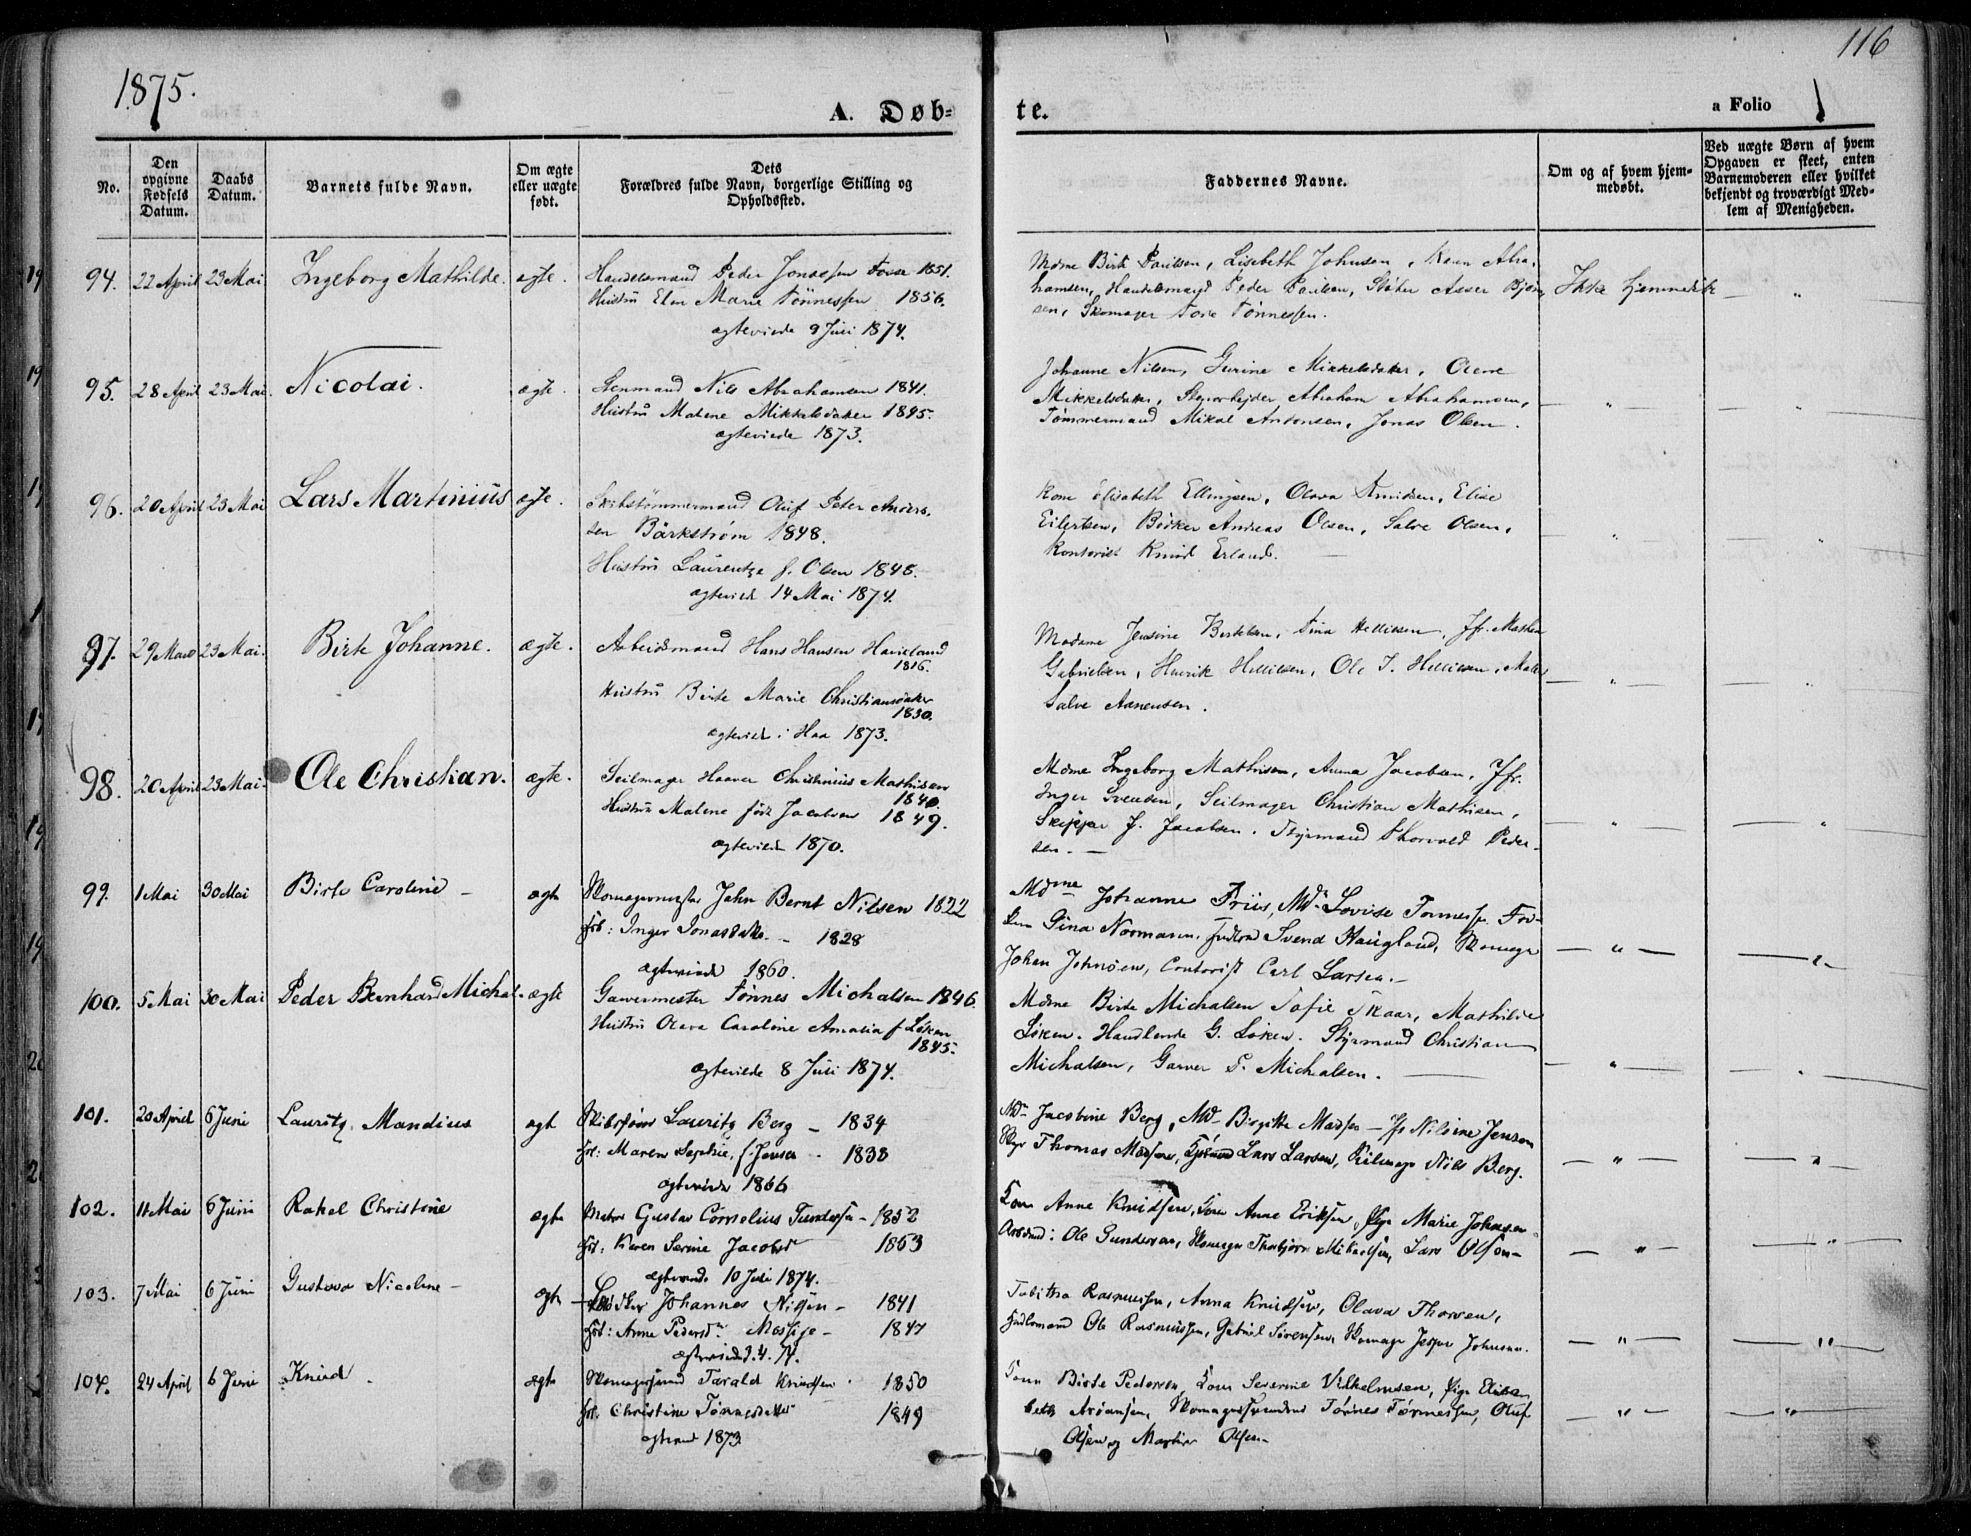 116
1875.
A. Døb-
te.
a Folio
No.
Den opgivne Fødsels Datum.
Daabs Datum.
Barnets fulde Navn.
Om ægte eller uægte født.
Dets Forældres fulde Navn, borgerlige Stilling og Opholdssted.
Faddernes Navne.
Om og af hvem hjemmedøbt.
Ved uægte Børn af hvem Opgaven er skeet, enten Barnemoderen eller hvilket bekjendt og troværdigt Medlem af Menigheden.
94. 22 April 23 Mai Ingeborg Mathilde. ægte. Handelsmand Peder Jonassen Fosse 1851.
Hustru Elen Marie Tønnessen 1856.
ægteviede 9 Juli 1874.
Mdme Birte Paulsen, Lisebeth Johnsen, Karen Abra-
hamsen, Handelsmand Peder Paulsen, Asser Bjørn-
sen, Skomager Tønnessen.
Ikke hjemmedøbt
95. 28 April 23 Mai. Nicolai. ægte. Stenmand Nils Abrahamsen 1841.
Hustru Malene Mikkelsdatter 1845.
ægteviede 1873.
Johanne Nilsen, Gurine Mikkelsdatter, Olene
Mikkelsdatter, Abraham Abrahamsen,
Tømmermand Mikal Antonsen, Jonas Olsen.
96. 20 April 23 Mai Lars Martinius ægte. Skibstømmermand Oluf Peter Anders-
sen Bärkstrøm 1848.
Hustru Laurentze f. Olsen 1848.
ægteviede 14 Mai 1874.
Kone Elisabeth Ellingsen, Olava Amundsen, Elise
Eilertsen, Bødker Andreas Olsen, Salve Olsen,
Kontorist Knud Erland.
97. 29 Marts 23 Mai. Birte Johanne. ægte. Arbeidsmand Hans Hansen Haveland
1816.
Hustru Birte Marie Christiansdatter
1830.
ægteviede i Haa 1873.
Madame Jensine Bertelsen, Tina Hellisen, Jfr.
Gabrielsen, Henrik Hellisen, Ole T. Hellisen,
Salve Aanensen.
98. 20 April 23 Mai. Ole Christian. ægte. Seilmager Haaver Christinius Mathisen
1840.
Hustru Malene født Jacobsen 1849.
ægteviede 1870.
Mdme Ingeborg Mathisen, Anna Jacobsen, Jfr.
Inger Svendsen, Seilmager Christian Mathisen,
Skipper J. Jacobsen. Styrmand Thorvald Peder-
sen.
99. 1 Mai 30 Mai Birte Caroline ægte Skomagermester John Bernt Nilsen 1822
Hst: Inger Jonasdatter 1828
ægteviede 1860.
Mdme Johanne Friis, Md. Lovise Tønnesse,
Gina Normann, Svend Haugland, Skomager
Johan Johnsen, Contorist Carl Larsen.
100. 5 Mai 30 Mai Peder Bernhard Michal. ægte Garvermester Tønnes Michalsen 1846
Hustru Olava Caroline Amalia f Løken
1845.
ægteviede 8 Juli 1874.
Mdme Birte Michalsen Tofie Skaar, Mathilde
Løken. Handlende G. Løken. Styrmand Christian
Michalsen, Garver P. Michalsen.
101. 20 April 6 Juni Lauritz Mandius ægte Lauritz Berg 1834
Hst: Maren Sophie f. Jensen 1838
ægteviede 1866
Md. Jacobine Berg, Md. Birgitte Madsen Jfr Nilsine Jensen
Thomas Madsen, Lars Larsen, Seilmager Nils Berg.
102. 11 Mai 6 Juni Rakel Christine ægte Matros Gustav Cornelius Gundersen 1852
Hst: Karen Serine Jacobsd 1853
ægteviede 10 Juli 1874.
Kone Anne Knudsen, Kone Anne Eriksen, Pige Marie Johnsen
Arbmd: Ole Gundersen, Skomager Thorbjørn Mikaelsen, Lars Olsen
103. 7 Mai 6 Juni Gustava Nicoline ægte Johannes Nilsen 1841
Hst: Anne Pedersd. Mossige 1847
ægteviede 3.4.74.
Tabitha Rasmussen, Anna Knudsen, Olava Thorsen,
Ole Rasmussen, Gabriel Sørensen, Skomager Jesper Johnsen.
104. 24 April 6 Juni Knud ægte Skomagersvend Tarald Knudsen 1850
Hst: Christine Tønnesdatter 1849
ægteviede 1873
Kone Birte Pedersen, Kone Severine Vilhelmsen, Pige Elisa-
beth Arøansen, Skomagersvendene Tønnes Tønnessen, Oluf
Olsen og Martin Olsen